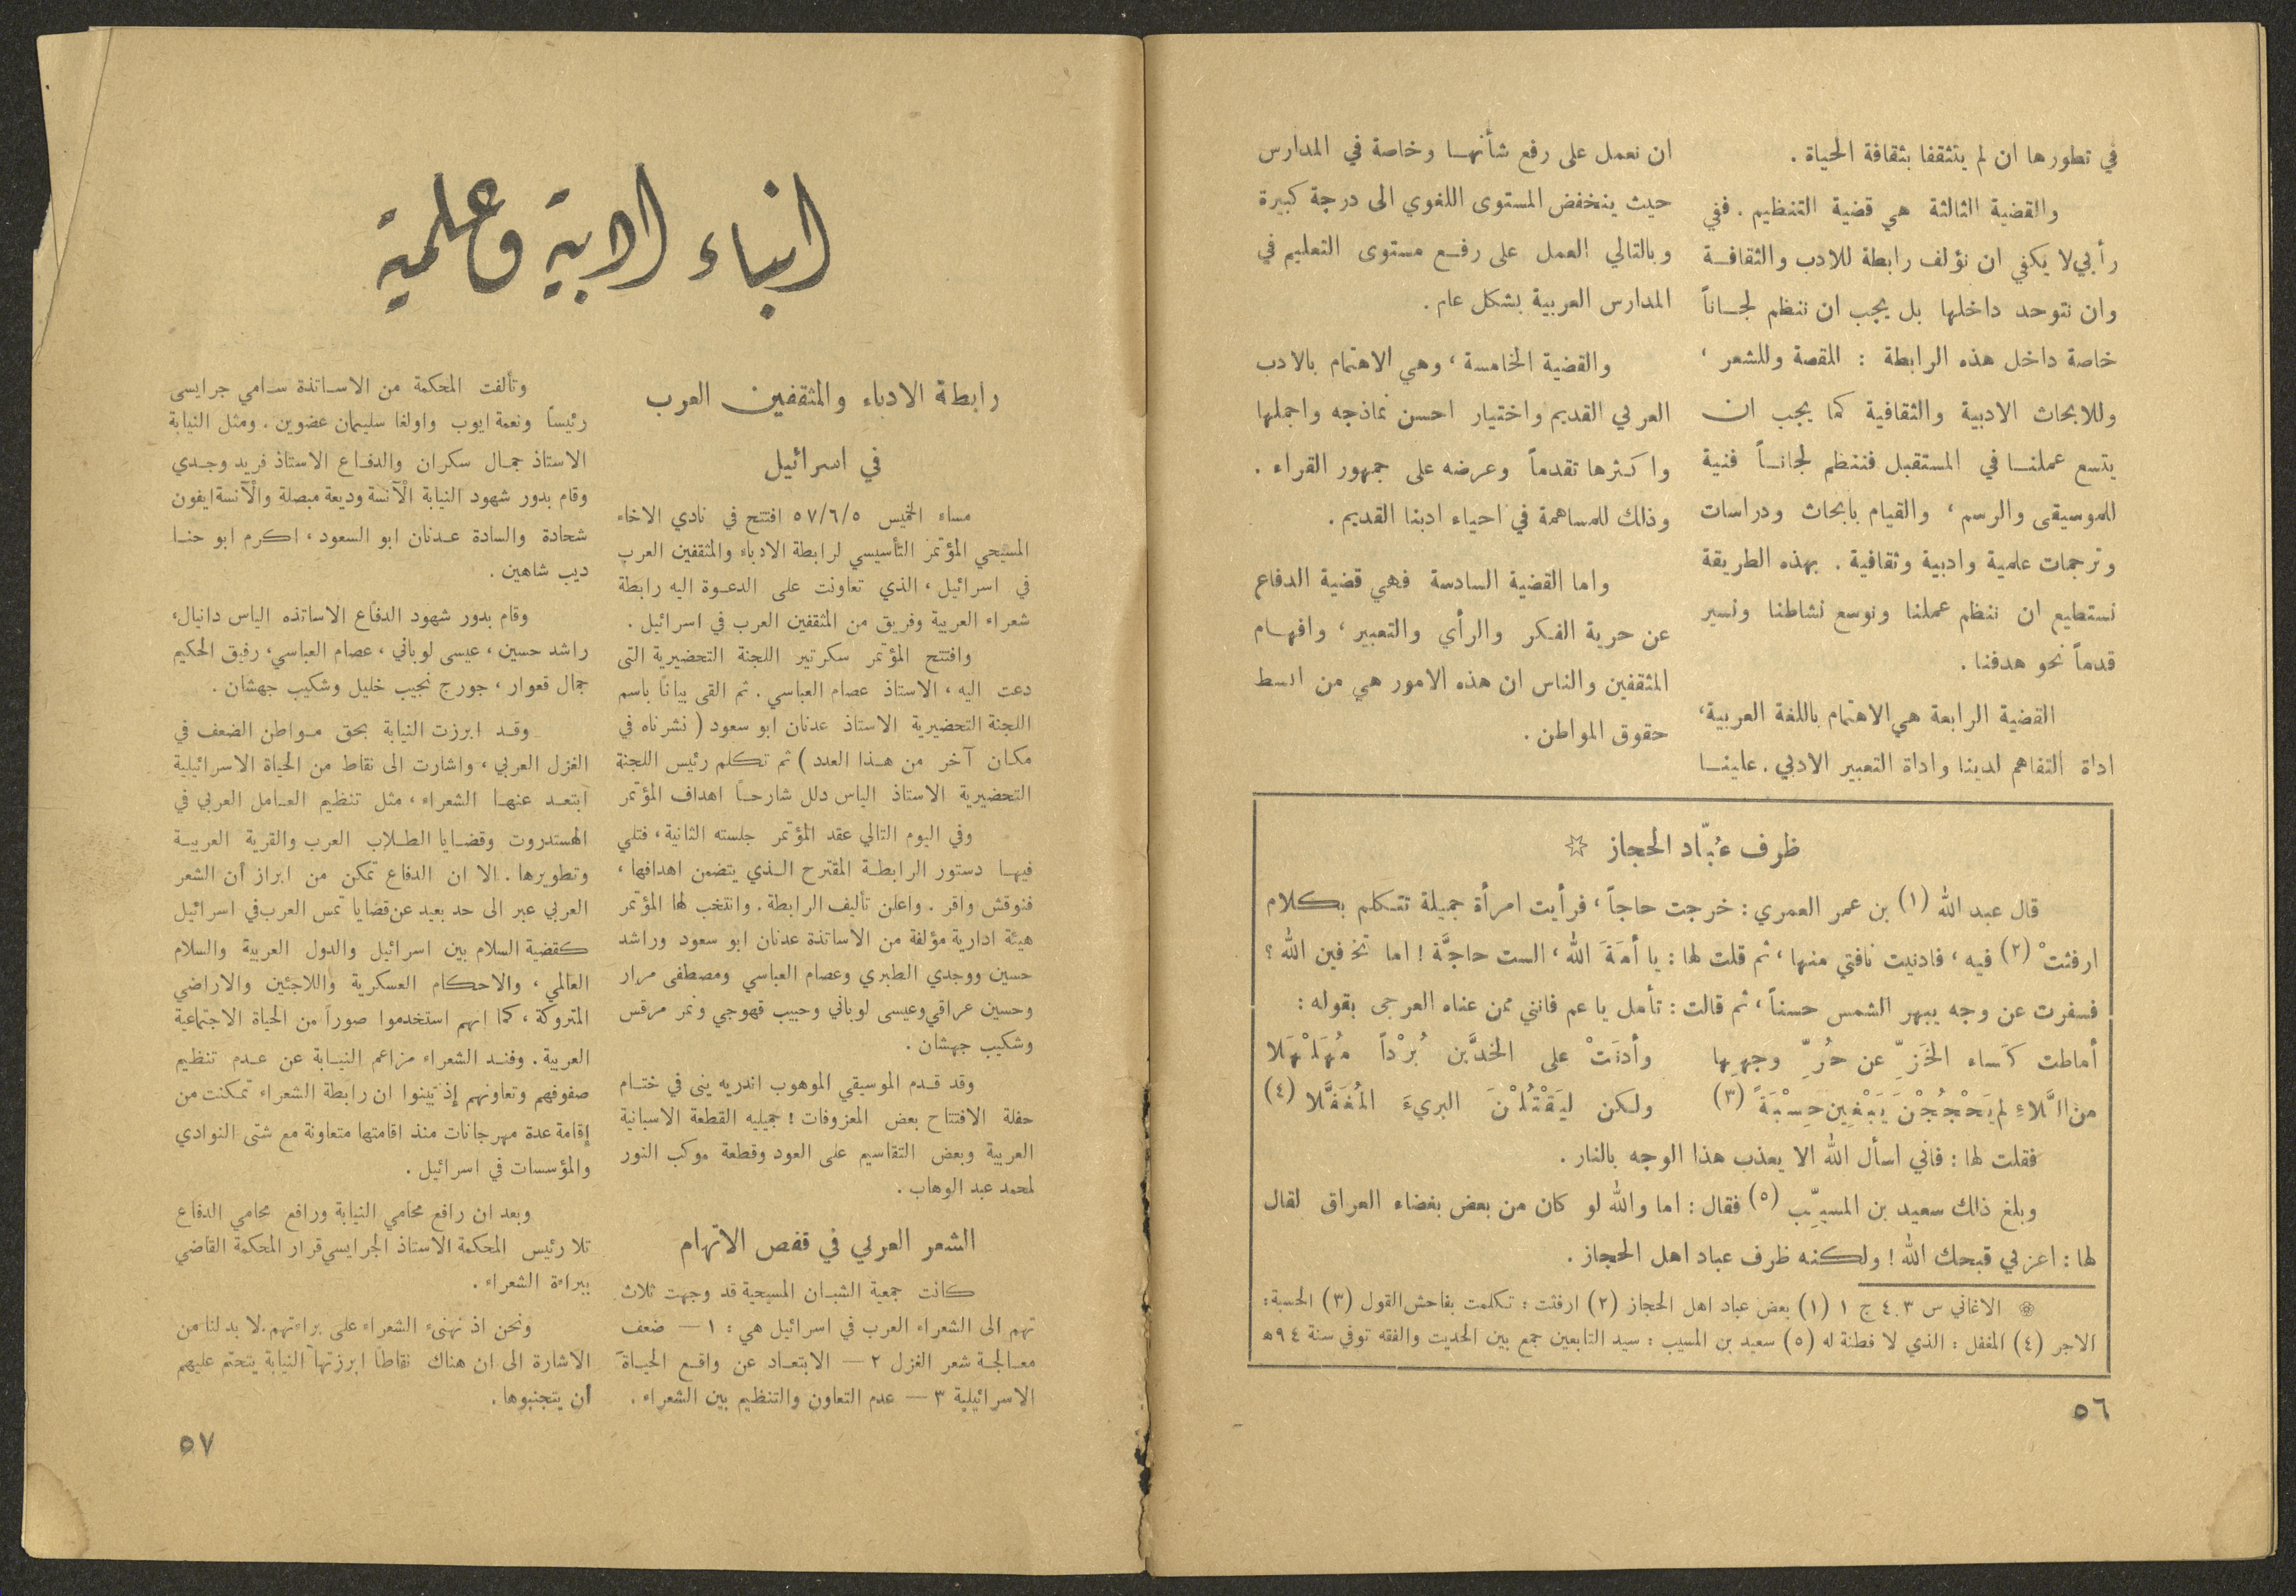 في تطورها ان لم يتثقفا بثقافة الحياة .
والقضية الثالثة هي قضية التنظيم . ففي
رأيي لا يكفي ان نؤلف رابطة للادب والثقافة
وان نتوحد داخلها بل يجب ان ننظم لجاناً
خاصة داخل هذه الرابطة : للقصة وللشعر ،
وللابحاث الادبية والثقافية كما يجب ان
يتسع عملنا في المستقبل فننظم لجاناً فنية
للموسيقى والرسم ، والقيام بابحاث ودراسات
وترجمات علمية وادبية وثقافية . بهذه الطريقة
نستطيع ان ننظم عملنا ونوسع نشاطنا ونسير
قدماً نحو هدفنا .
القضية الرابعة هي الاهتمام باللغة العربية ،
اداة التفاهم لدينا واداة التعبير الادبي . علينا
ان نعمل على رفع شأنها وخاصة في المدارس
حيث ينخفض المستوى اللغوي الى درجة كبيرة
وبالتالي العمل على رفع مستوى التعليم في
المدارس العربية بشكل عام .
والقضية الخامسة ، وهي الاهتمام بالادب
العربي القديم واختيار احسن نماذجه واجملها
واكثرها تقدماً وعرضه على جمهور القراء .
وذلك للمساهمة في احياء ادبنا القديم .
واما القضية السادسة فهي قضية الدفاع
عن حرية الفكر والرأي والتعبير ، وافهام
المثقفين والناس ان هذه الامور هي من ابسط
حقوق المواطن .
ظرف عُبّاد الحجاز ☆
قال عبد الله (١) بن عمر العمري : خرجت حاجاً ، فرأيت امرأة جميلة تتكلم بكلام
ارفثتْ (٢) فيه ، فادنيت ناقتي منها ، ثم قلت لها : يا أمَةَ الله ، الست حاجَّة ! اما تخافين الله ؟
فسفرت عن وجه يبهر الشمس حسناً ، ثم قالت : تأمل يا عم فانني ممن عناه العرجى بقوله :
أماطت كَساء الخَزِّ عن حُرِّ وجهِها وأدنَتْ على الخدَّين بُرْداً مُهَلْهَلا
من الَّلاءِ لم يَحْجُجْنَ يَبْغِين حِسْبَةً (٣) ولكن ليَقْتُلْنَ البريءَ المُغَفَّلا (٤)
فقلت لها : فاني اسأل الله الا يعذب هذا الوجه بالنار .
وبلغ ذلك سعيد بن المسيّب (٥) فقال : اما والله لو كان من بعض بغضاء العراق لقال
لها : اعزبي قبحك الله ! ولكنه ظرف عباد اهل الحجاز .
❊ الاغاني س ٤٠٣ ج ١ (١) بعض عباد اهل الحجاز (٢) ارفثت : تكلمت بفاحش القول (٣) الحسبة :
الاجر (٤) المغفل : الذي لا فطنة له (٥) سعيد بن المسيب : سيد التابعين جمع بين الحديث والفقه توفي سنة ٩٤ﻫ
٥٦
انباء ادبية وعلمية
رابطة الادباء والمثقفين العرب
في اسرائيل
مساء الخميس ٥٧/٦/٥ افتتح في نادي الاخاء
المسيحي المؤتمر التأسيسي لرابطة الادباء والمثقفين العرب
في اسرائيل ، الذي تعاونت على الدعوة اليه رابطة
شعراء العربية وفريق من المثقفين العرب في اسرائيل .
وافتتح المؤتمر سكرتير اللجنة التحضيرية التى
دعت اليه ، الاستاذ عصام العباسي . ثم القى بياناً باسم
اللجنة التحضيرية الاستاذ عدنان ابو سعود ( نشرناه في
مكان آخر من هذا العدد ) ثم تكلم رئيس اللجنة
التحضيرية الاستاذ الياس دلل شارحاً اهداف المؤتمر
وفي اليوم التالي عقد المؤتمر جلسته الثانية ، فتلي
فيها دستور الرابطة المقترح الذي يتضمن اهدافها ،
فنوقش واقر . واعلن تأليف الرابطة . وانتخب لها المؤتمر
هيئة ادارية مؤلفة من الاساتذة عدنان ابو سعود وراشد
حسين ووجدي الطبري وعصام العباسي ومصطفى مرار
وحسين عراقي وعيسى لوباني وحبيب قهوجي ونمر مرقس
وشكيب جهشان .
وقد قدم الموسيقي الموهوب اندريه ينى في ختام
حفلة الافتتاح بعض المعزوفات ! جميليه القطعة الاسبانية
العربية وبعض التقاسيم على العود وقطعة موكب النور
لمحمد عبد الوهاب .
الشعر العربي في قفص الاتهام
كانت جمعية الشبان المسيحية قد وجهت ثلاث
تهم الى الشعراء العرب في اسرائيل هي : ١ — ضعف
معالجة شعر الغزل ٢ — الابتعاد عن واقع الحياة
الاسرائيلية ٣ — عدم التعاون والتنظيم بين الشعراء .
وتألفت المحكمة من الاساتذة سامي جرايسى
رئيساً ونعمة ايوب واولغا سليمان عضوين . ومثل النيابة
الاستاذ جمال سكران والدفاع الاستاذ فريد وجدي
وقام بدور شهود النيابة الآنسة وديعة مبصلة والآنسة ايفون
شحادة والسادة عدنان ابو السعود ، اكرم ابو حنا
ديب شاهين .
وقام بدور شهود الدفاع الاساتذه الياس دانيال ،
راشد حسين ، عيسى لوباني ، عصام العباسي ، رفيق الحكيم
جمال قعوار ، جورج نجيب خليل وشكيب جهشان .
وقد ابرزت النيابة بحق مواطن الضعف في
الغزل العربي ، واشارت الى نقاط من الحياة الاسرائيلية
ابتعد عنها الشعراء ، مثل تنظيم العامل العربي في
الهستدروت وقضايا الطلاب العرب والقرية العربية
وتطويرها . الا ان الدفاع تمكن من ابراز أن الشعر
العربي عبر الى حد بعيد عن قضايا تمس العرب في اسرائيل
كقضية السلام بين اسرائيل والدول العربية والسلام
العالمي ، والاحكام العسكرية واللاجئين والاراضي
المتروكة ، كما انهم استخدموا صوراً من الحياة الاجتماعية
العربية . وفند الشعراء مزاعم النيابة عن عدم تنظيم
صفوفهم وتعاونهم إذ تبينوا ان رابطة الشعراء تمكنت من
إقامة عدة مهرجانات منذ اقامتها متعاونة مع شتى النوادي
والمؤسسات في اسرائيل .
وبعد ان رافع محامي النيابة ورافع محامي الدفاع
تلا رئيس المحكمة الاستاذ الجرايسي قرار المحكمة القاضي
ببراءة الشعراء .
ونحن اذ نهنىء الشعراء على براءتهم . لا بد لنا من
الاشارة الى ان هناك نقاطاً ابرزتها النيابة يتحتم عليهم
أن يتجنبوها .
٥٧